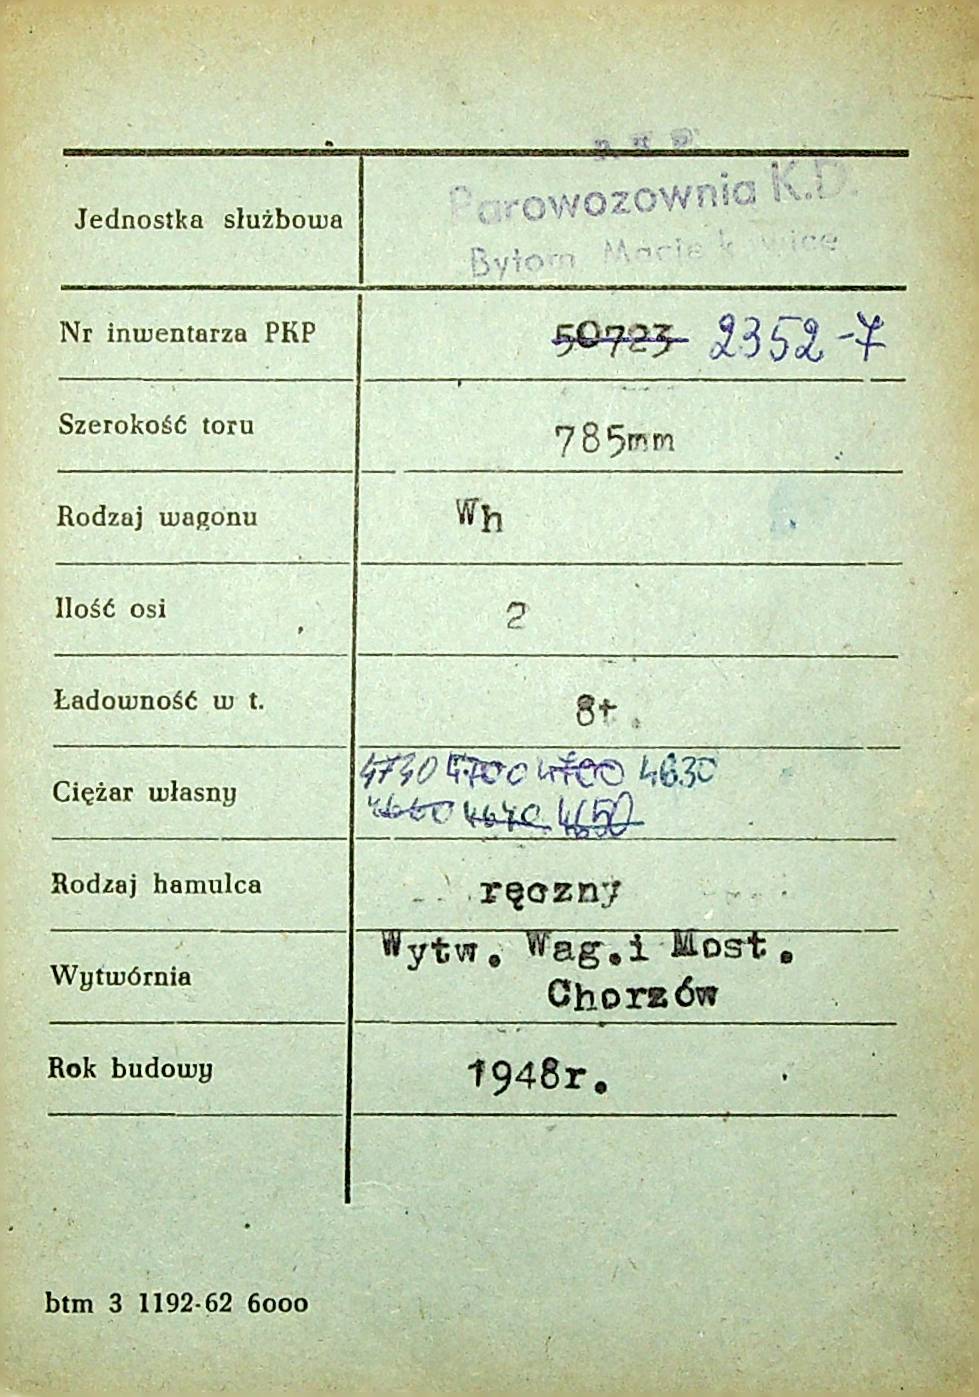 P K P
Jednostka służbowa Parowozownia K.D.
Bytom
Nr inwentarza PKP 50723 2352-7
Szerokość toru 785mm
Rodzaj wagonu Wh
Ilość osi 2
Ładowność w t. 8t.
4740 4700 4700 4630
Ciężar własny
4640 4650
Rodzaj hamulca ręczny
Wytw. Wag.i Most.
Wytwórnia
Chorzów
Rok budowy 1948r.
btm 3 1192-62 6000